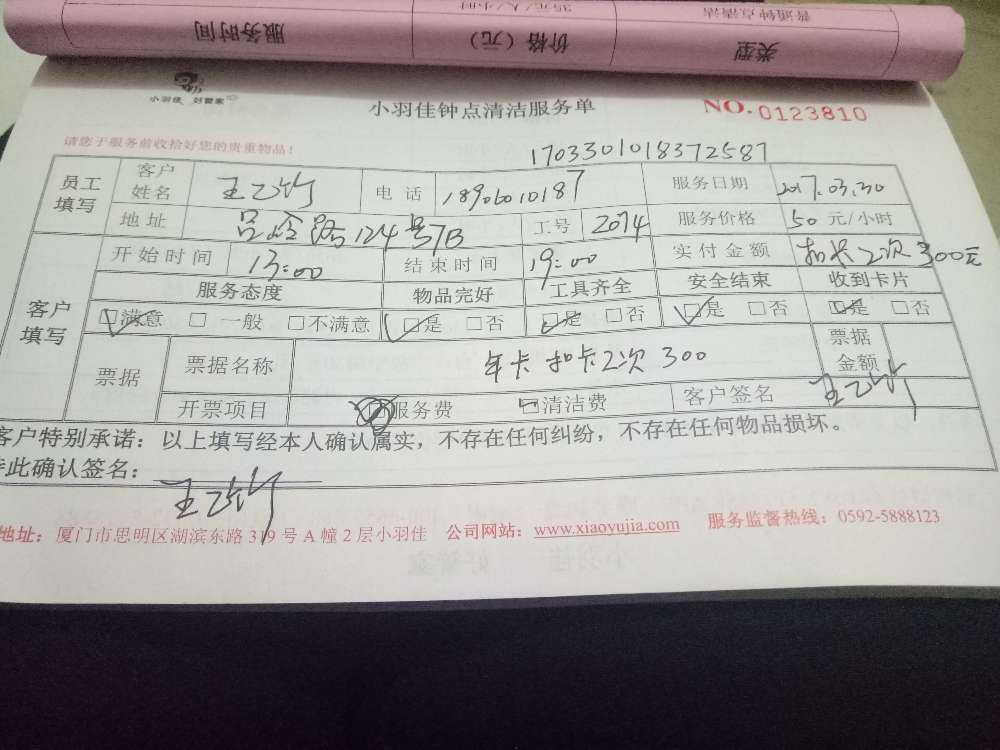 普通钟点清洁 35元/人/小时
类型 价格（元） 服务时间
小羽佳 好管家
小羽佳钟点清洁服务单 NO.0123810
请您于服务前收拾好您的贵重物品！
1703301018372587
员工填写 客户姓名 王乙竹 电话 18906010187 服务日期 2017.03.30
地址 吕岭路124号7B 工号 2074 服务价格 50元/小时
客户填写 开始时间 13:00 结束时间 19:00 实付金额 扣卡2次 300元
服务态度 物品完好 工具齐全 安全结束 收到卡片
☑满意 □一般 □不满意 ☑是 □否 ☑是 □否 ☑是 □否 ☑是 □否
票据 票据名称 年卡 扣卡2次 300 票据金额
开票项目 服务费 □清洁费 客户签名 王乙竹
客户特别承诺：以上填写经本人确认属实，不存在任何纠纷，不存在任何物品损坏。
此确认签名： 王乙竹
地址：厦门市思明区湖滨东路319号A幢2层小羽佳 公司网站：www.xiaoyujia.com 服务监督热线：0592-5888123
小羽佳 好管家